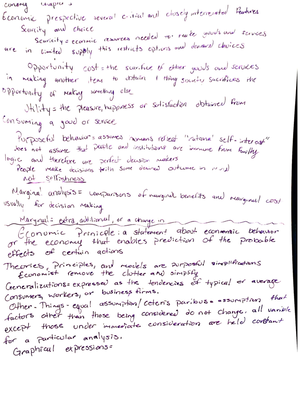 Economic perspective several critical and closely interrelated features
Scarcity and choice
Scarcity = economic resources needed to make goods and services
are in limited supply this restricts options and demand choices
Opportunity cost = the sacrifice of other goods and services
in making another item to obtain 1 thing society sacrifices the
opportunity of making something else
Utility = the pleasure, happiness or satisfaction obtained from
consuming a good or service
Purposeful behavior = assumes humans reflect "rational self-interest"
does not assume that people and institutions are immune from faulty
logic and therefore are perfect decision makers
People make decisions with some desired outcome in mind
not selfishness
Marginal analysis = comparisons of marginal benefits and marginal cost
usually for decision making
Marginal = extra, additional, or a change in
Economic Principle: a statement about economic behavior
or the economy that enables prediction of the probable
effects of certain actions
Theories, Principles, and models are purposeful simplifications
Economist remove the clutter and simplify
Generalizations = expressed as the tendencies of typical or average
consumers, workers, or business firms.
Other-Things-equal assumption/ceteris paribus = assumption that
factors other than those being considered do not change. all variable
except those under immediate consideration are held constant
for a particular analysis.
Graphical expressions =